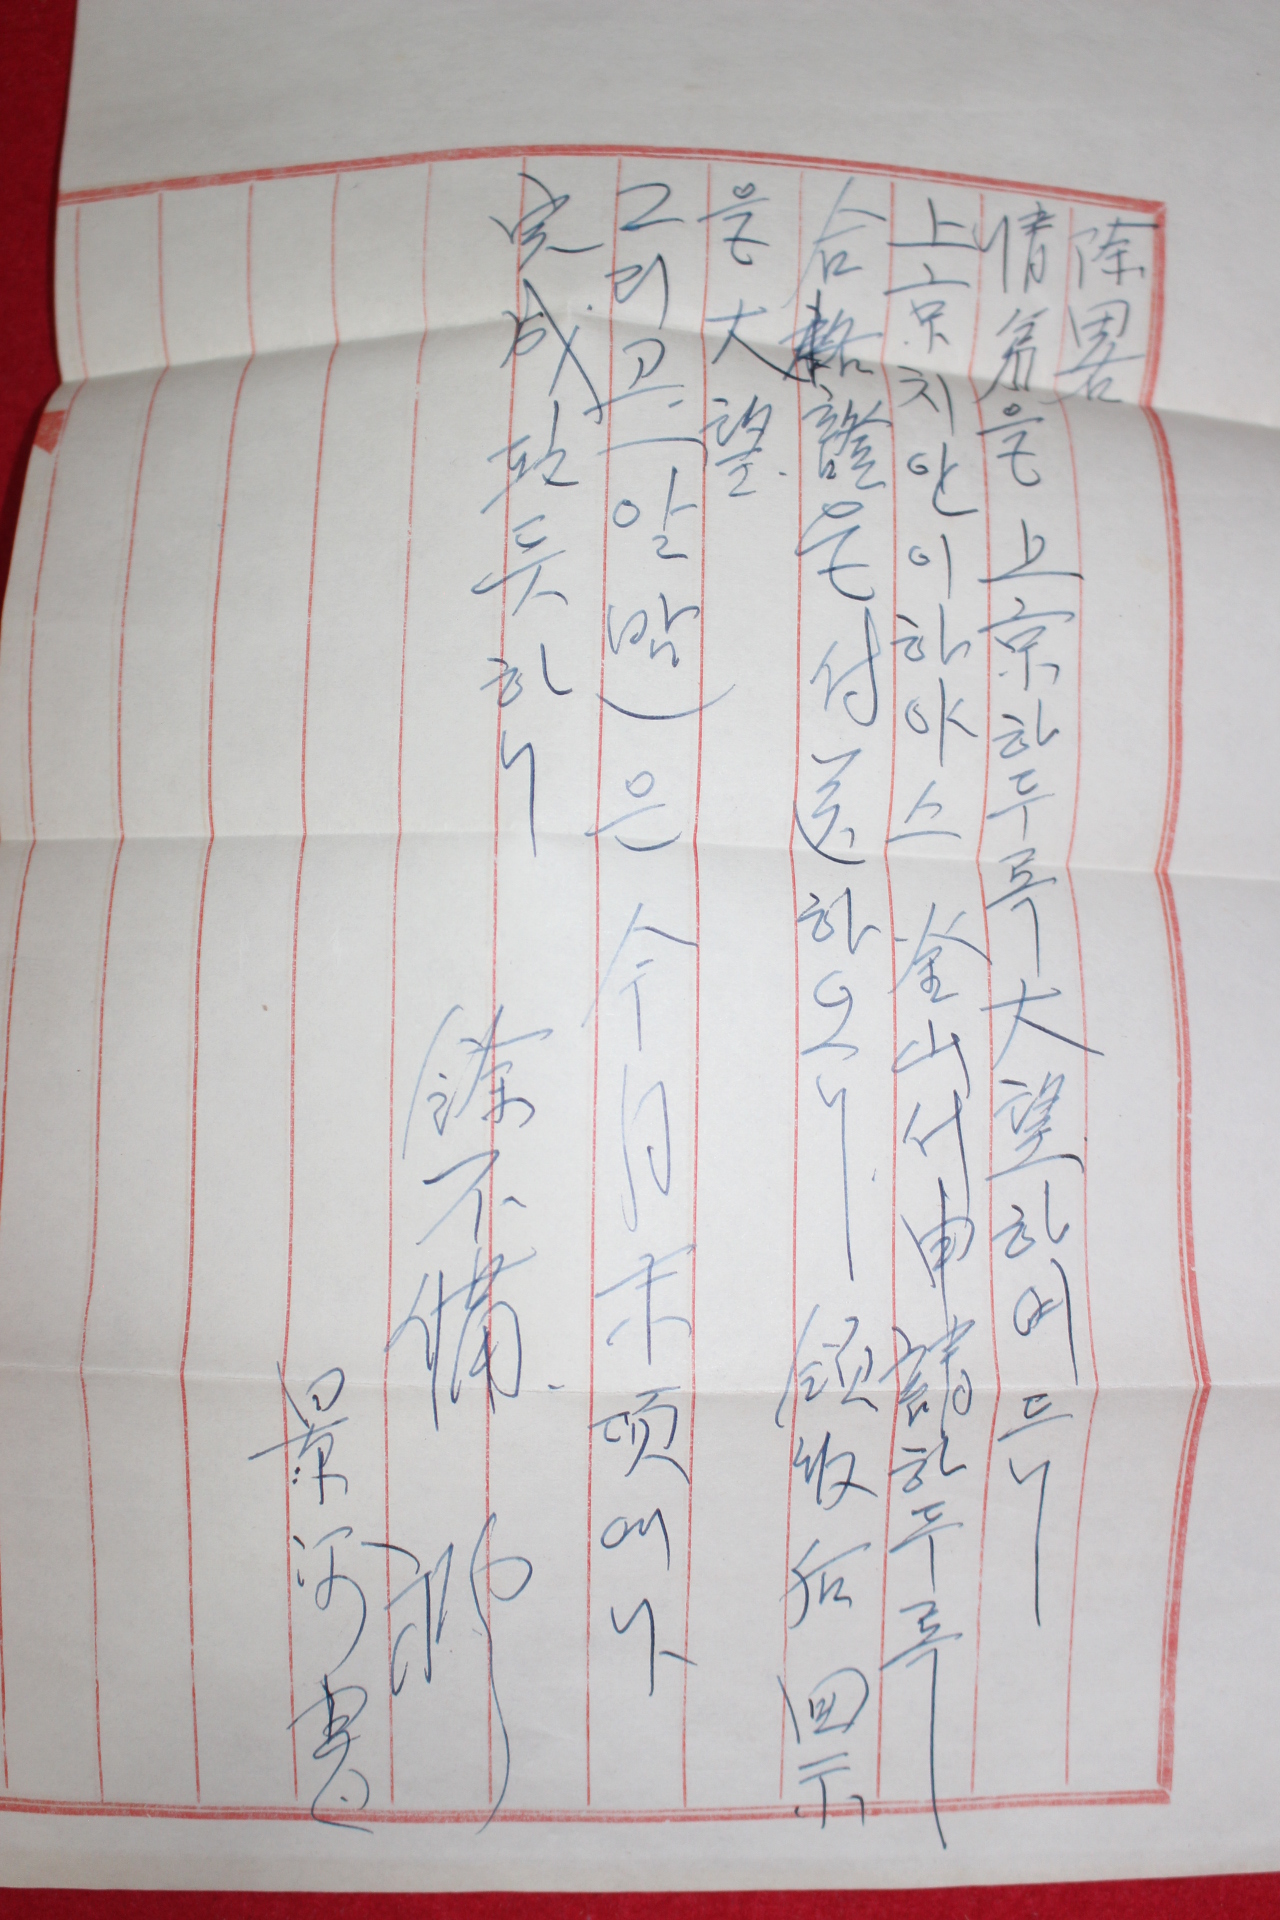 除畧
情翁은 上京하두록 大望하여드니
上京치안이하야스 釜山서申請하두록
合格證은 付送하오니 領收后 回示
을 大望.
그리고 (알맘)은 今月末頃에나
完成될듯하니
餘不備.
景河書